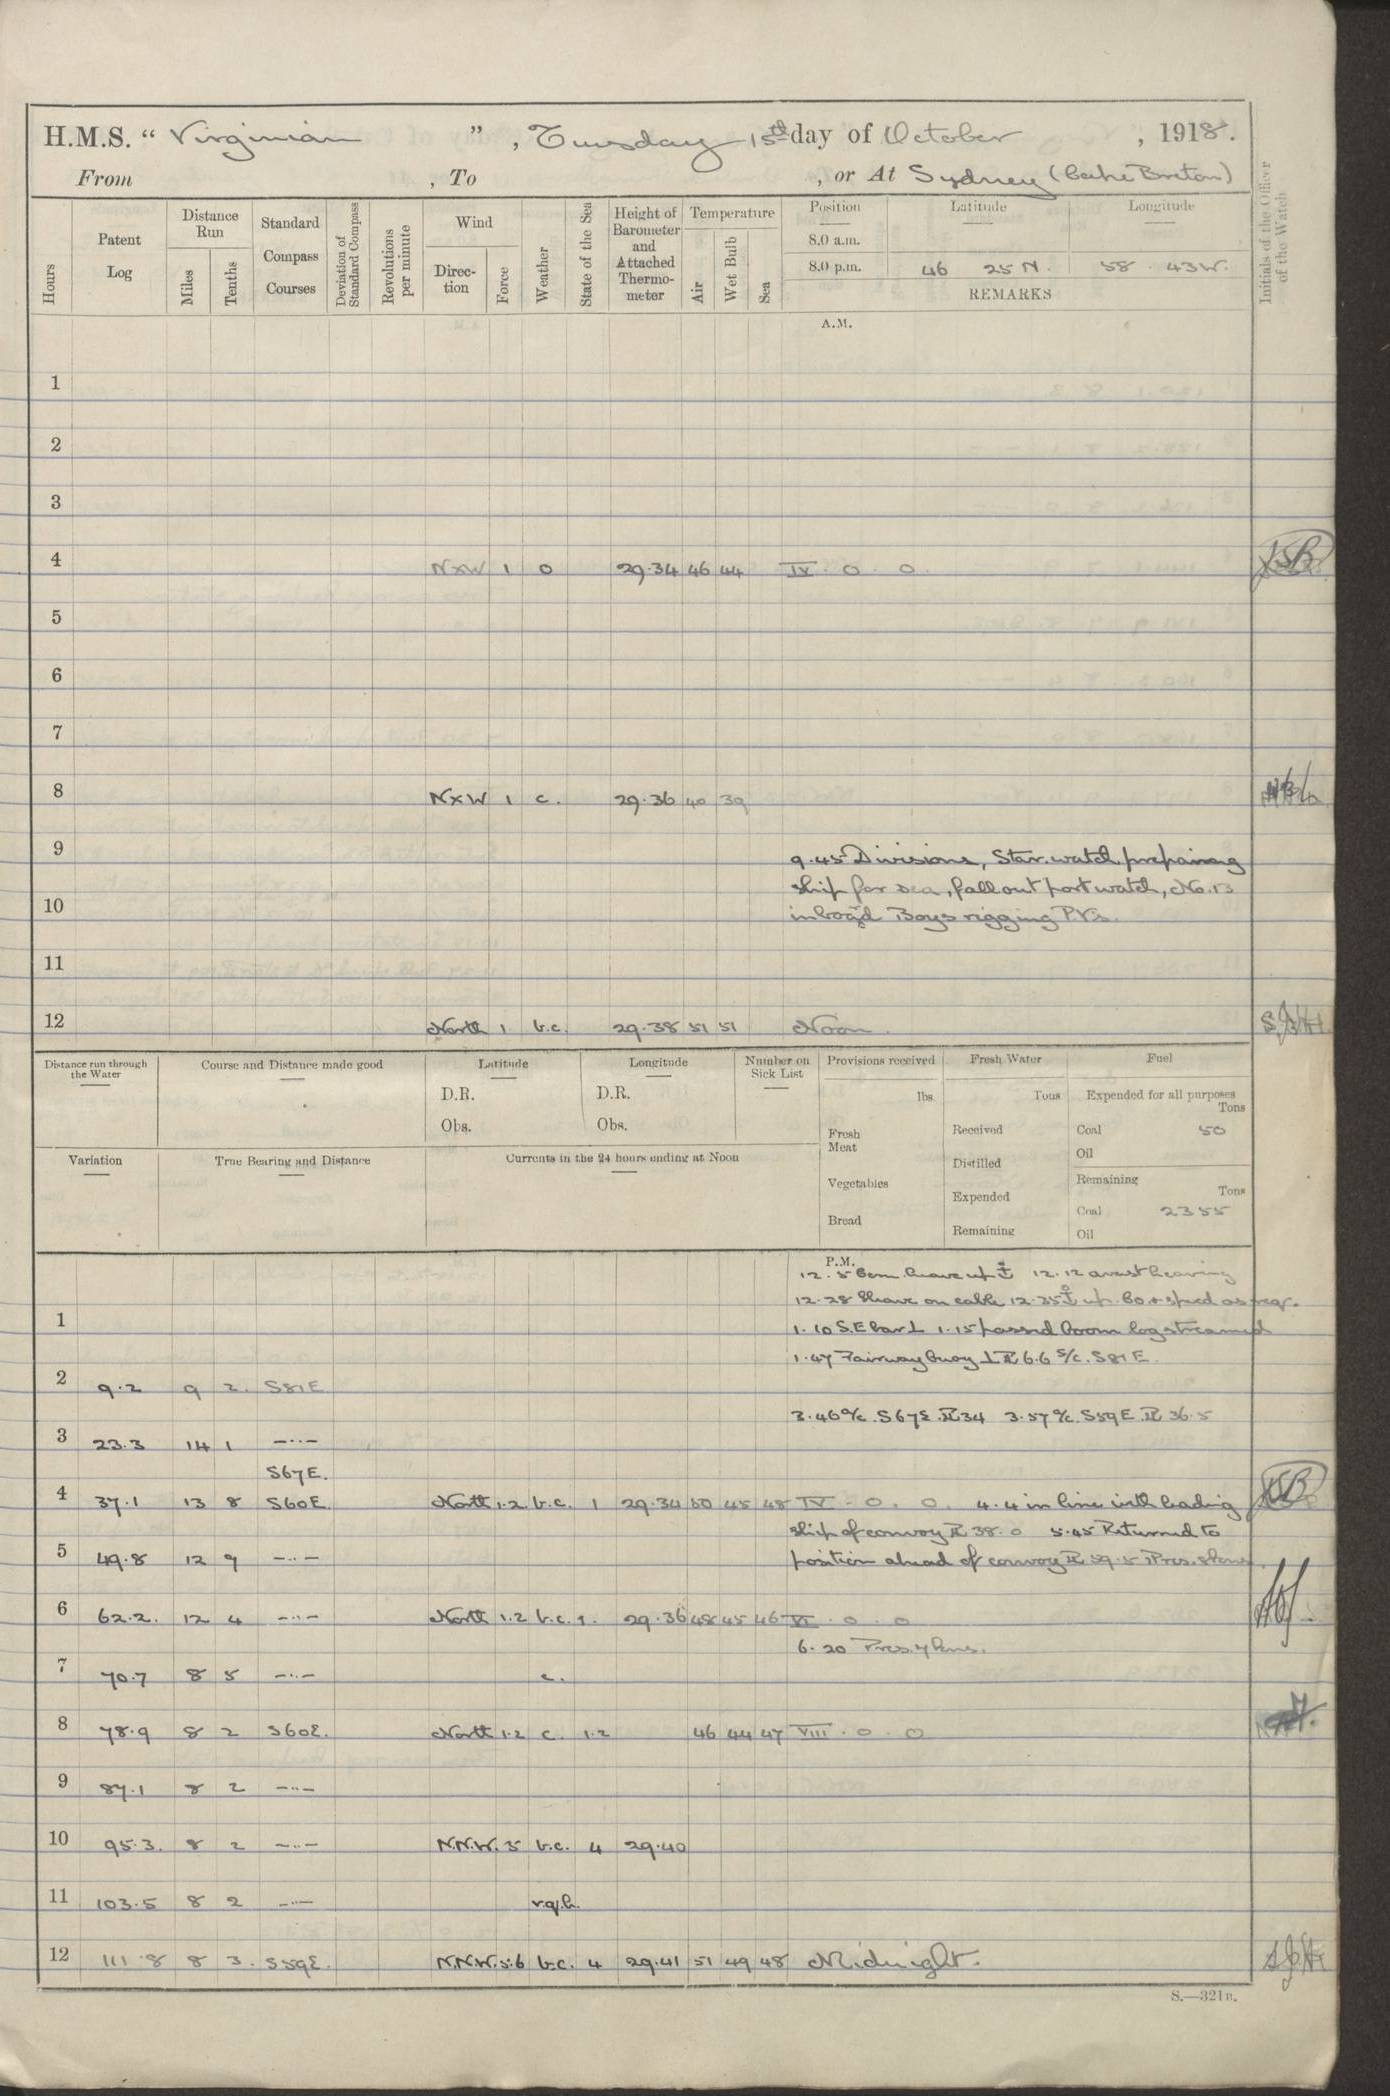 H.M.S. “ Virginian ”, Tuesday 15th day of October, 1918.
From , To , or At Sydney (Cape Breton)
Hours
Patent Log
Distance Run
Miles
Tenths
Standard Compass Courses
Deviation of Standard Compass
Revolutions per minute
Wind
Direc-tion
Force
Weather
State of the Sea
Height of Barometer and Attached Thermo-meter
Temperature
Air
Wet Bulb
Sea
Position Latitude Longitude
8.0 a.m.
8.0 p.m. 46 25 N. 58 43 W.
REMARKS
Initials of the Officer of the Watch
A.M.
1
2
3
4 NxW 1 o 29.34 46 44 IV . 0 . 0
5
6
7
8 NxW 1 c. 29.36 40 39
9 9.45 Divisions, Star. watch preparing
ship for sea, fall out port watch, No. 13
10 inboard Boys rigging P.V's.
11
12 North 1 b.c. 29.38 51 51 Noon
Distance run through the Water
Course and Distance made good
Latitude
D.R.
Obs.
Longitude
D.R.
Obs.
Number on Sick List
Provisions received
lbs.
Fresh Meat
Vegetables
Bread
Fresh Water
Tons
Received
Distilled
Expended
Remaining
Fuel
Expended for all purposes
Tons
Coal 50
Oil
Remaining
Tons
Coal 2355
Oil
Variation
True Bearing and Distance
Currents in the 24 hours ending at Noon
P.M.
12.5 Com. heave up ⚓ 12.12 avast heaving
12.28 Heave on cable 12.35 ⚓ up. Co. & speed as req.
1 1.10 S.E bar ⊥ 1.15 passed boom log streamed
1.47 Fairway buoy ⊥ PL 6.6 s/c. S81E.
2 9.2 9 2. S81E
3.46 a/c. S67E. PL 34 3.57 a/c. S59E. PL 36.5
3 23.3 14 1 —··—
S67E.
4 37.1 13 8 S60E. North 1.2 b.c. 1 29.34 50 45 48 IV . 0 . 0. 4.4 in line with leading
ship of convoy PL 38.0 5.45 Returned to
5 49.8 12 9 —··— position ahead of convoy PL 59.5
6 62.2. 12 4 —··— North 1.2 b.c. 1. 29.36 48 45 46 VI . 0 . 0
6.20
7 70.7 8 5 —··— c.
8 78.9 8 2 S60E. North 1.2 c. 1.2 46 44 47 VIII . 0 . 0
9 87.1 8 2 —··—
10 95.3. 8 2 —··— N.N.W. 5 b.c. 4 29.40
11 103.5 8 2 —··—
12 111.8 8 3. S59E. N.N.W. 5.6 b.c. 4 29.41 51 49 48 Midnight.
S.—321B.